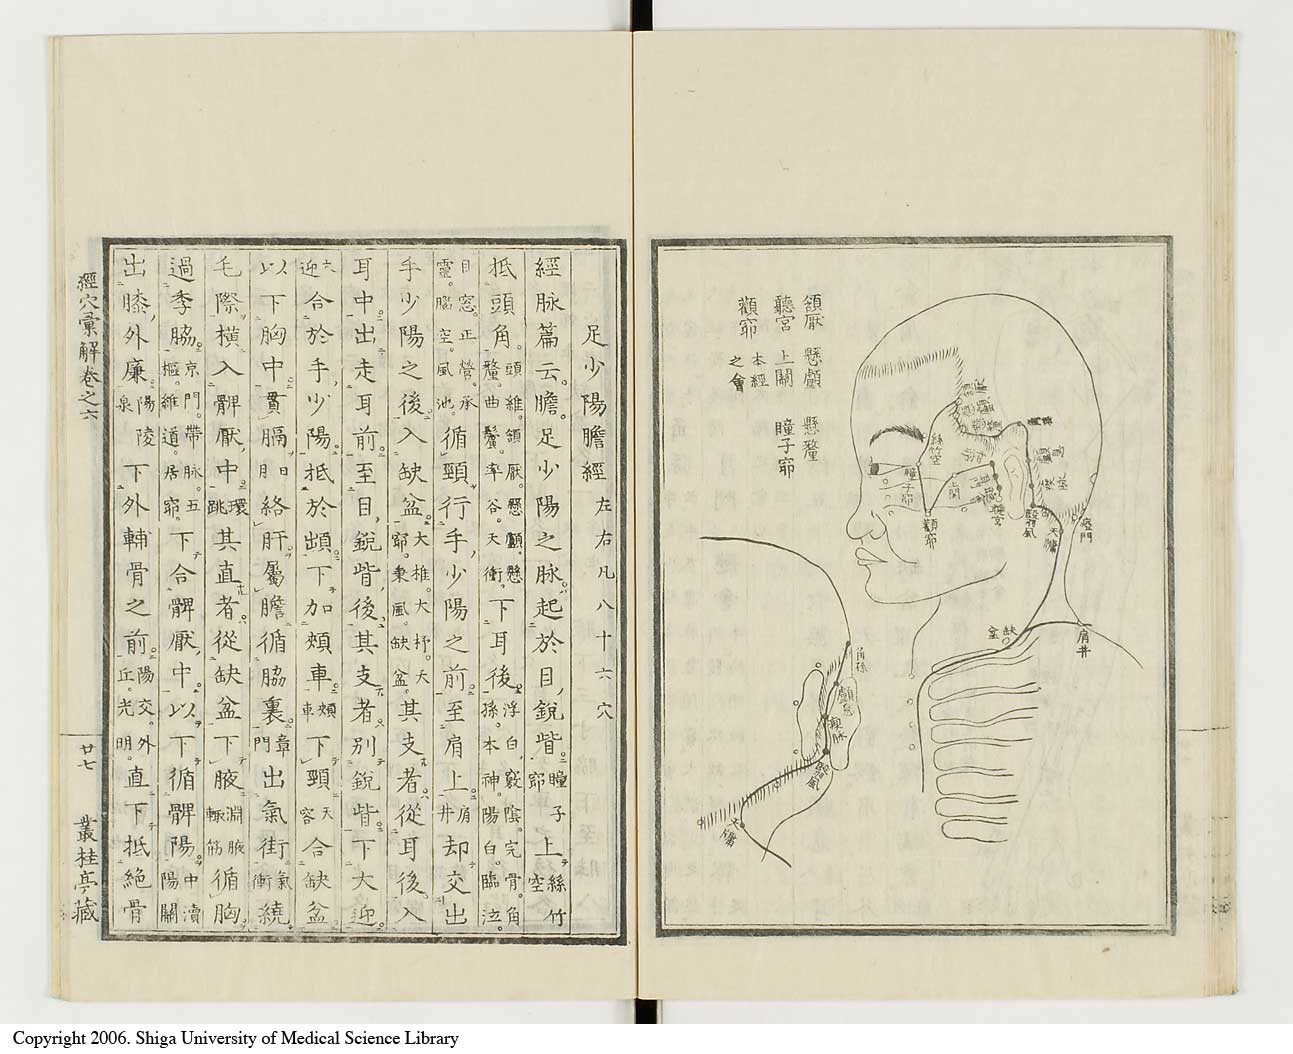 頷厭 懸顱 懸釐
聽宮 上關 瞳子窌
顴窌 本經之會
絲竹空
瞳子窌
顴窌
上関
聽宮
翳風
天牖
瘂門
缺盆
肩井
角孫
顱息
瘈脉
翳風
天牖
足少陽膽經左右凡八十六穴
經脉篇云。膽。足少陽之脉。起於目銳眥。瞳子窌上絲竹空
抵頭角。頭維。頷厭。懸顱。懸釐。曲鬢。率谷。天衝。下耳後。浮白。竅陰。完骨。角孫。本神。陽白。臨泣。
目窓。正營。承靈。腦空。風池。循頸行手少陽之前。至肩上。肩井却交出
手少陽之後。入缺盆。大椎。大杼。天窌。秉風。缺盆。其支者。從耳後。入
耳中。出走耳前。至目銳眥後。其支者。別銳眥。下大迎。
大迎合於手少陽。抵於䪼。下加頰車。頰車下頸。天容合缺盆
以下胸中。貫膈日月絡肝。屬膽循脇裏。章門出氣街。氣衝繞
毛際。橫入髀厭中。環跳其直者。從缺盆下腋。淵腋輒筋循胸。
過季脇。京門。帶脉。五樞。維道。居窌。下合髀厭中。以下循髀陽。中瀆陽關
出膝外廉。陽陵泉下外輔骨之前。陽交。外丘。光明。直下抵絶骨
經穴彙解卷之六 廿七 叢桂亭藏
Copyright 2006. Shiga University of Medical Science Library